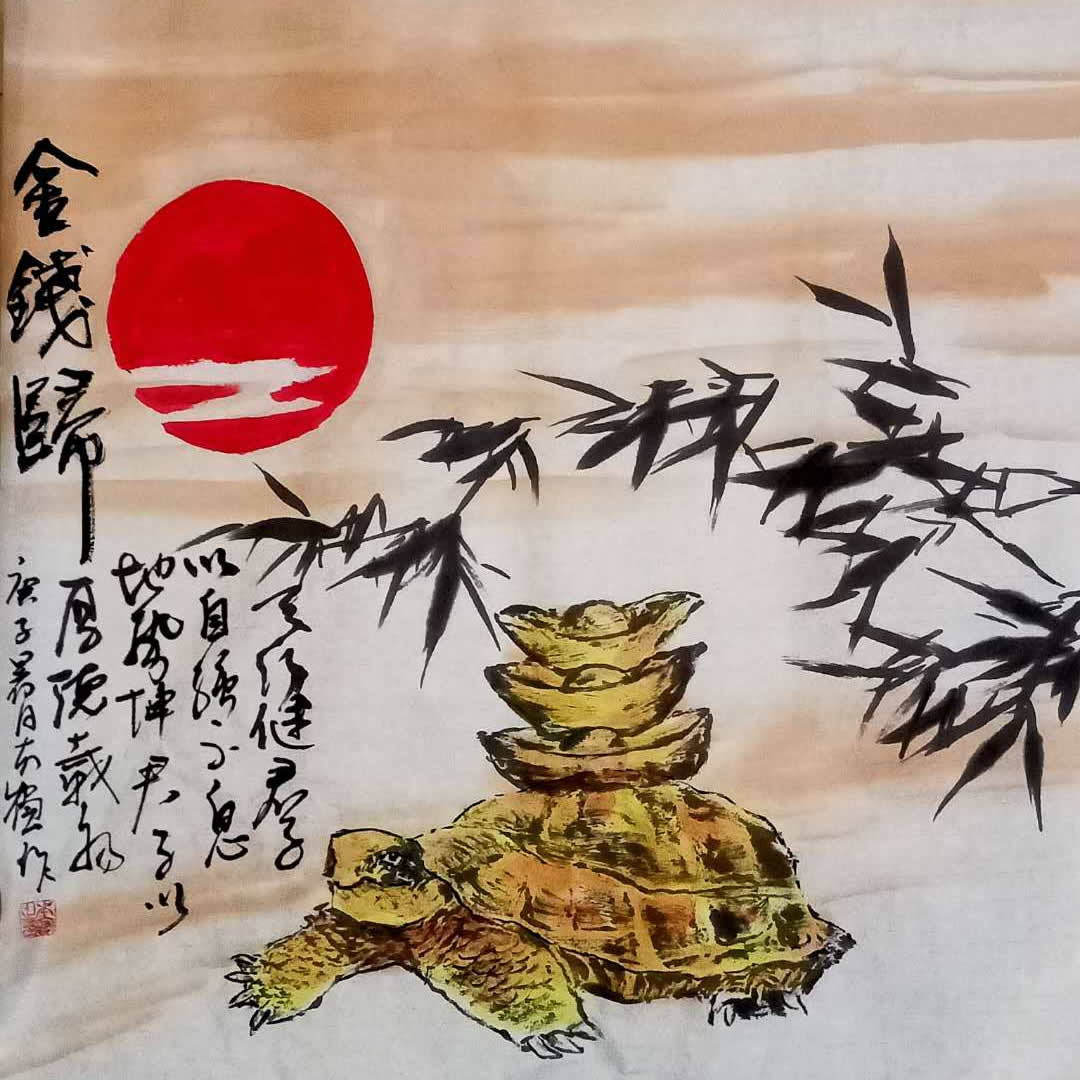 金錢歸
天行健君子
以自强不息
地势坤君子以
厚德載物
庚子暑月作